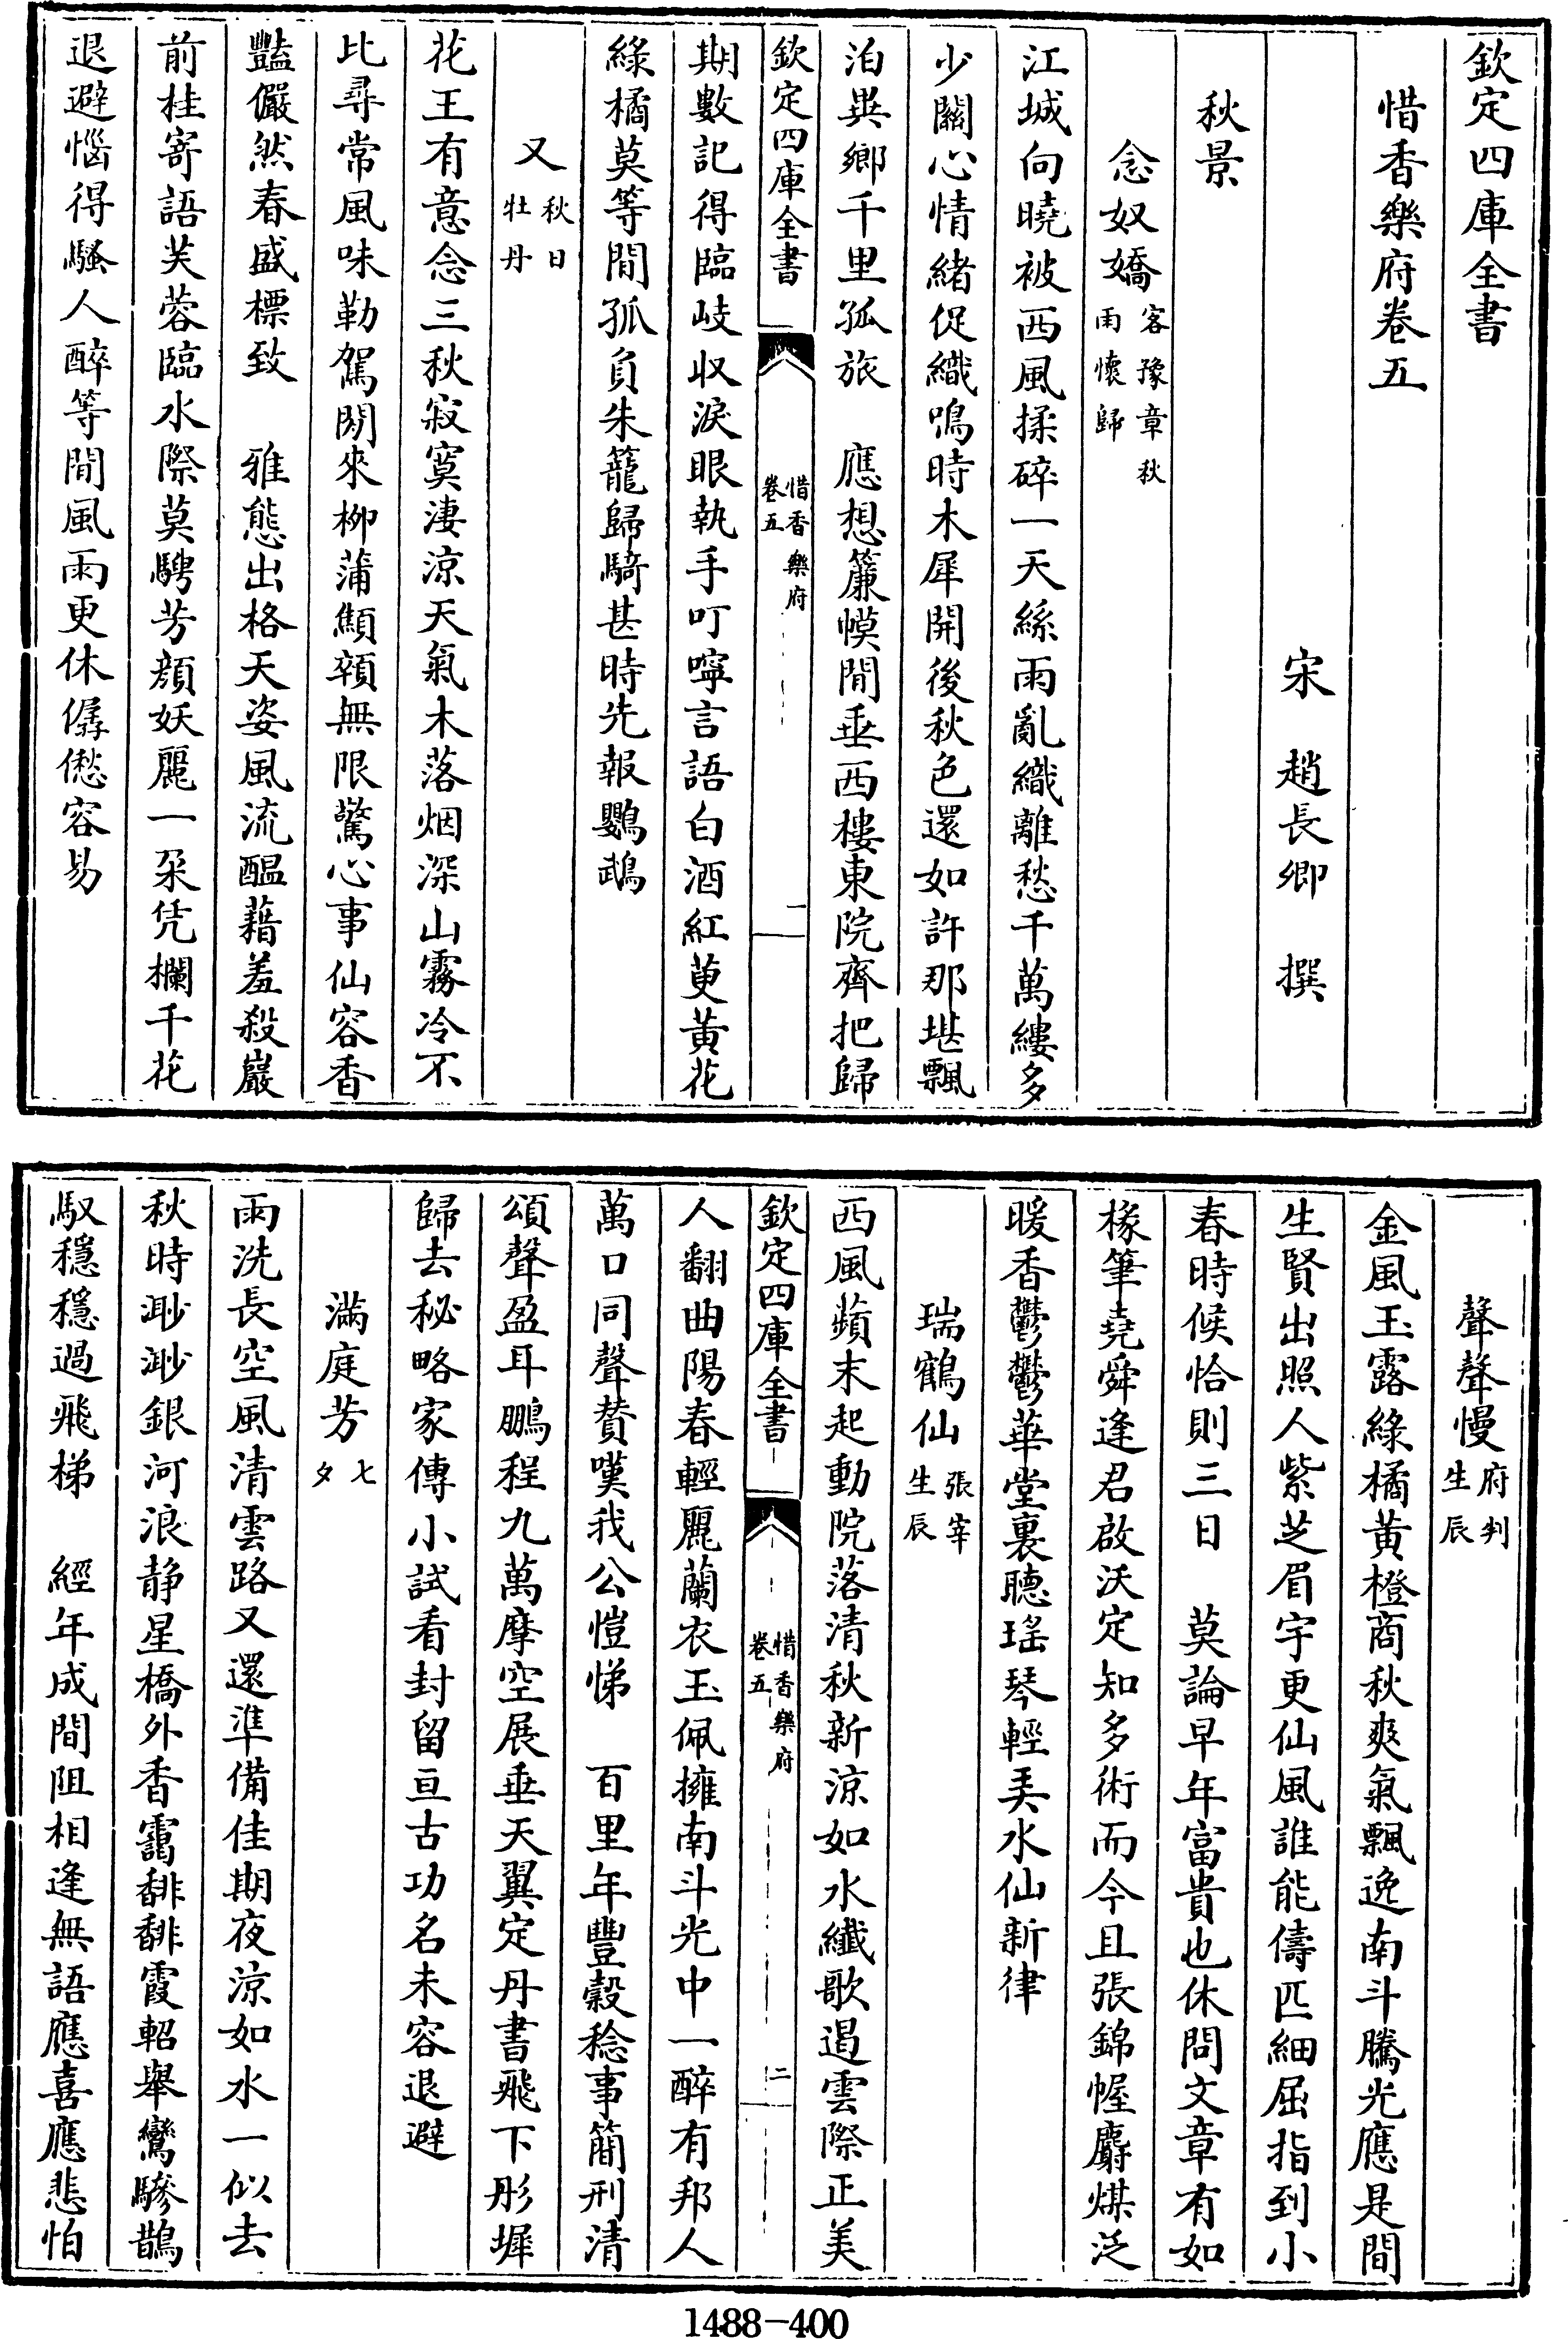 欽定四庫全書
惜香樂府卷五
宋　趙長卿　撰
秋景
念奴嬌客豫章秋雨懷歸
江城向曉被西風揉碎一天絲雨亂織離愁千萬縷多
少關心情緒促織鳴時木犀開後秋色還如許那堪飄
泊異鄉千里孤旅　應想簾幙間垂西樓東院齊把歸
欽定四庫全書
惜香樂府
卷五
一
期數記得臨岐収淚眼執手叮嚀言語白酒紅萸黄花
綠橘莫等閒孤負朱籠歸騎甚時先報鸚鵡
又秋日牡丹
花王有意念三秋寂寞淒涼天氣木落烟深山霧冷不
比尋常風味勒駕閒來柳蒲顦顇無限驚心事仙容香
豔儼然春盛標致　雅態出格天姿風流醖藉羞殺巖
前桂寄語芙蓉臨水際莫騁芳顔妖麗一朶凭欄千花
退避惱得騷人醉等閒風雨更休僝僽容易
聲聲慢府判生辰
金風玉露綠橘黄橙商秋爽氣飄逸南斗騰光應是間
生賢出照人紫芝眉宇更仙風誰能儔匹細屈指到小
春時候恰則三日　莫論早年富貴也休問文章有如
椽筆堯舜逢君啟沃定知多術而今且張錦幄麝煤泛
暖香鬱鬱華堂裏聽瑤琴輕美水仙新律
瑞鶴仙張宰生辰
西風蘋末起動院落清秋新涼如水纖歌遏雲際正美
欽定四庫全書
惜香樂府
卷五
二
人翻曲陽春輕麗蘭衣玉佩擁南斗光中一醉有邦人
萬口同聲賛嘆我公愷悌　百里年豐穀稔事簡刑清
頌聲盈耳鵬程九萬摩空展垂天翼定丹書飛下彤墀
歸去秘略家傳小試看封留亘古功名未容退避
滿庭芳七夕
雨洗長空風清雲路又還準備佳期夜涼如水一似去
秋時渺渺銀河浪静星橋外香靄馡馡霞軺舉鸞驂鵲
馭穩穩過飛梯　經年成間阻相逢無語應喜應悲怕
1488-400